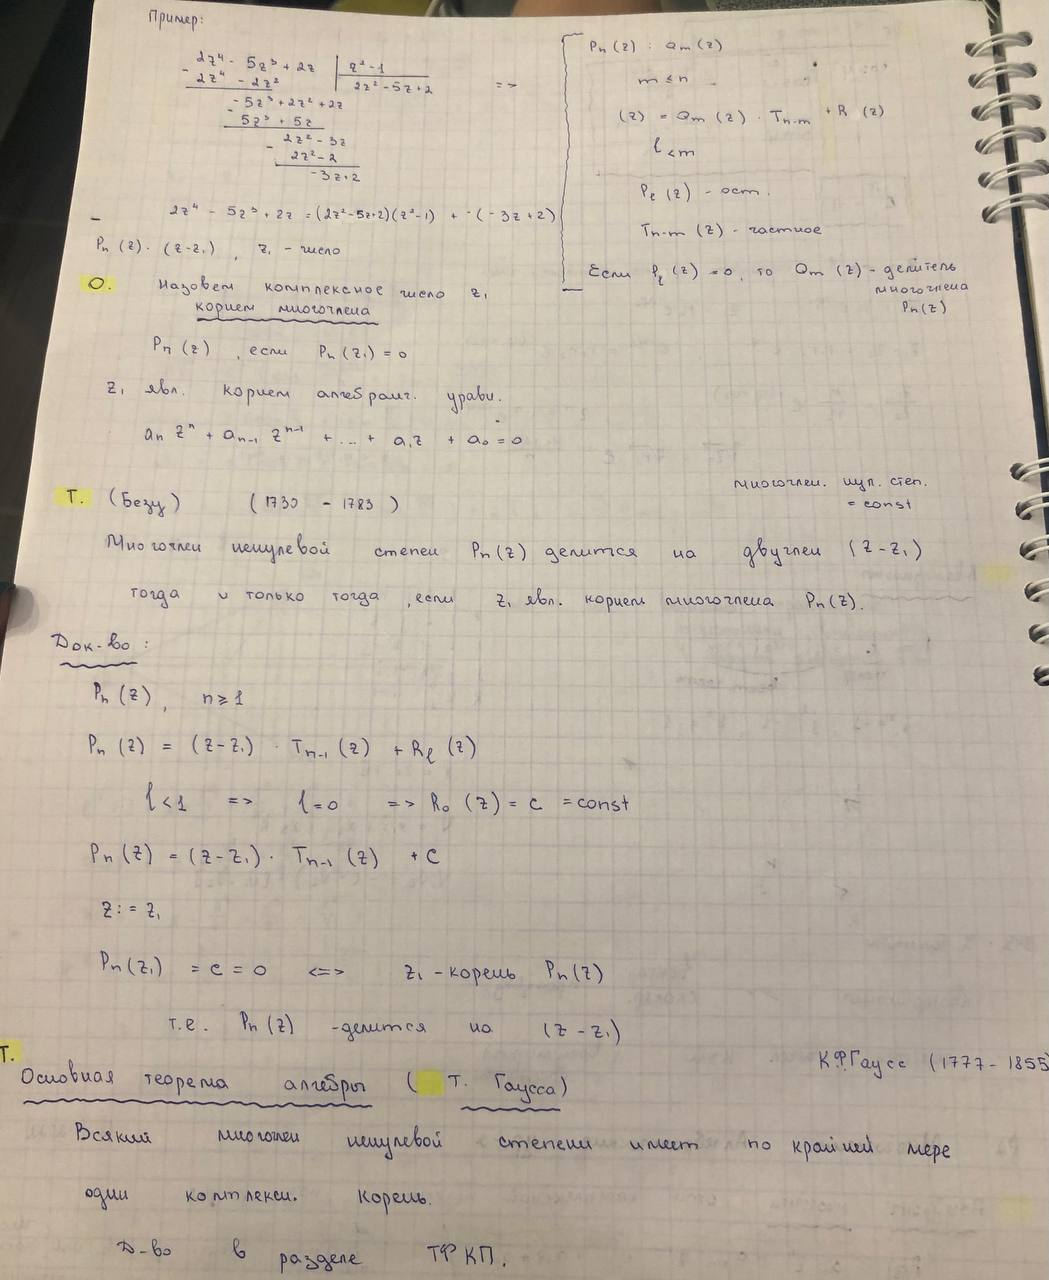 Пример:
2z⁴ - 5z³ + 2z | z² - 1
- 2z⁴ - 2z² | 2z² - 5z + 2 =>
- 5z³ + 2z² + 2z
- 5z³ + 5z
2z² - 3z
- 2z² - 2
- 3z + 2
2z⁴ - 5z³ + 2z = (2z² - 5z + 2)(z² - 1) + (-3z + 2)
Pn(z) : Qm(z)
m ≤ n
(z) = Qm(z) · Tn-m + R (z)
l < m
Pℓ(z) - ост.
Tn-m(z) - частное
Если Pℓ(z) = 0, то Qm(z) - делитель
многочлена
Pn(z)
Pn(z) · (z - z₁), z₁ - число
О. Назовем комплексное число z₁
корнем многочлена
Pn(z), если Pn(z₁) = 0
z₁ явл. корнем алгебраич. уравн.
an zⁿ + an-1 zⁿ⁻¹ + ... + a₁z + a₀ = 0
многочлен. нул. степ.
= const
Т. (Безу) (1730 - 1783)
Многочлен ненулевой степен Pn(z) делится на двучлен (z - z₁)
тогда и только тогда, если z₁ явл. корнем многочлена Pn(z).
Док-во:
Pn(z), n ≥ 1
Pn(z) = (z - z₁) · Tn-1(z) + Rℓ(z)
l < 1 => l = 0 => R₀(z) = c = const
Pn(z) = (z - z₁) · Tn-1(z) + C
z := z₁
Pn(z₁) = c = 0 <=> z₁ - корень Pn(z)
т.е. Pn(z) - делится на (z - z₁)
Т. К.Ф.Гаусс (1777 - 1855)
Основная теорема алгебры ( т. Гаусса)
Всякий многочлен ненулевой степени имеет по крайней мере
один комплексн. корень.
Д-во в разделе ТФКП.